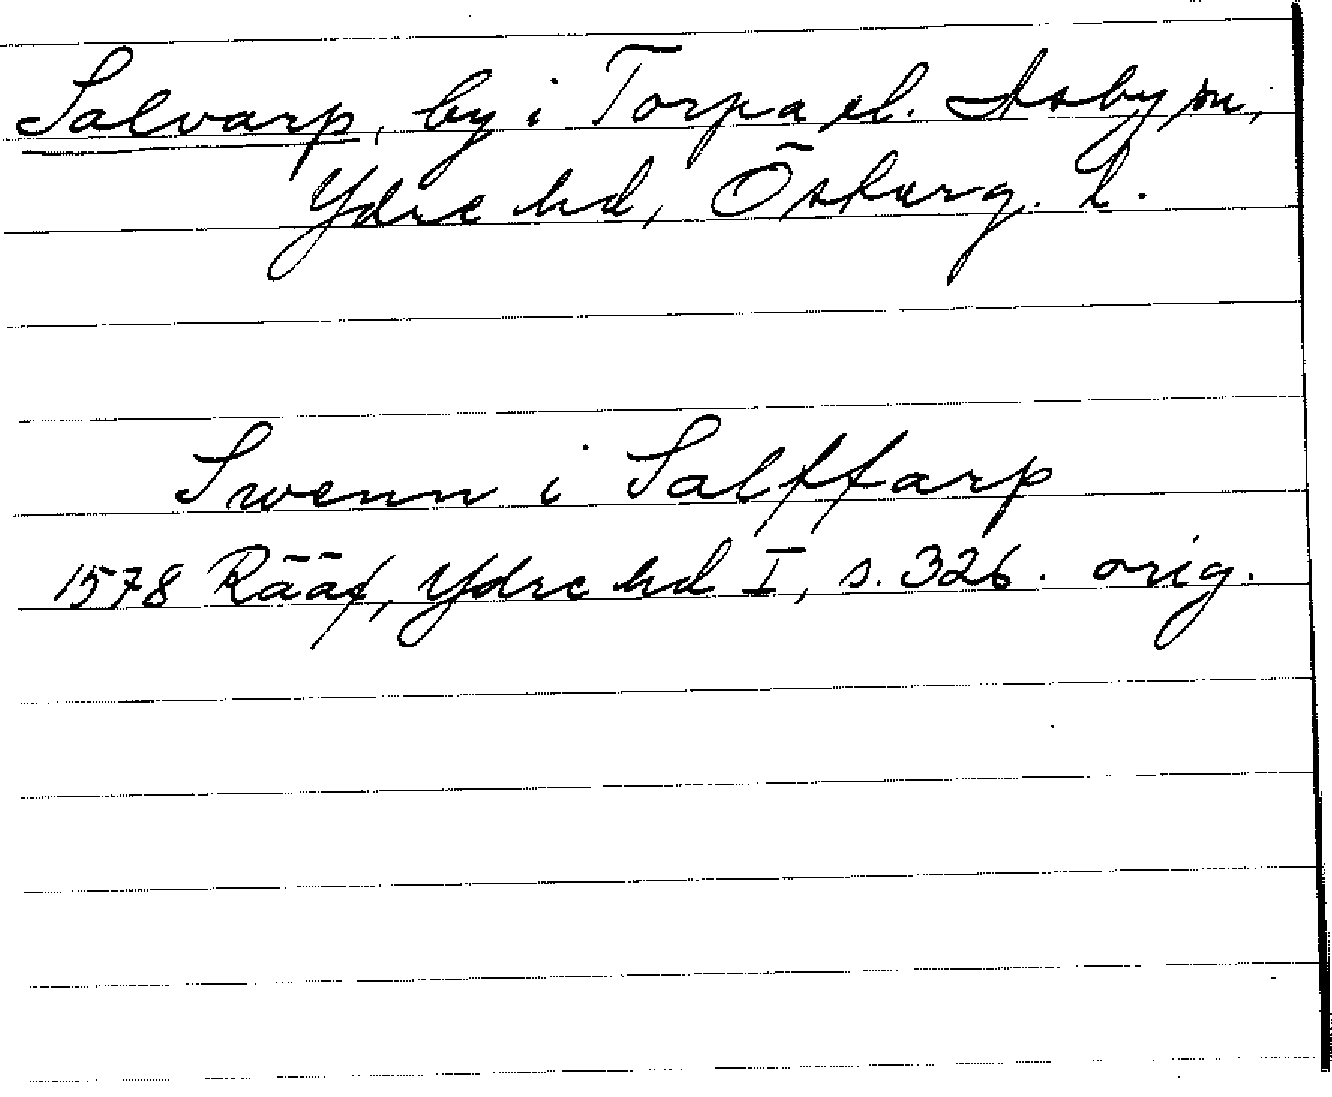 Salvarp, by i Torpa el. Asby sn,
Ydre hd, Österg. L.
Swenn i Salffarp
1578 Rääf, Ydre hd I, s. 326. orig.